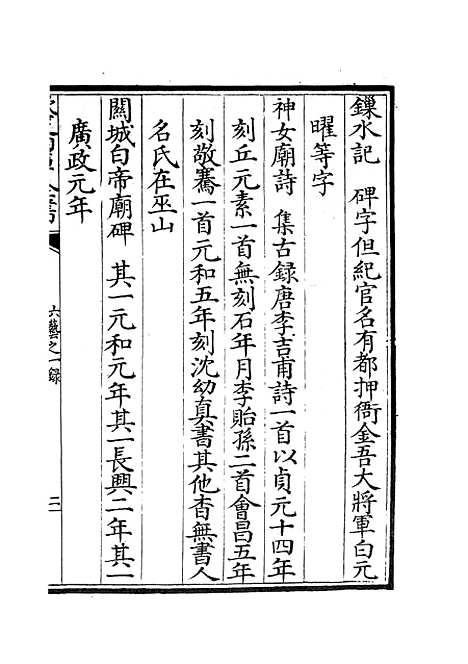 鏁水記　碑字但紀官名有都押衙金吾大將軍白元
曜等字
神女廟詩　集古録唐李吉甫詩一首以貞元十四年
刻丘元素一首無刻石年月李貽孫二首會昌五年
刻敬騫一首元和五年刻沈幼真書其他杳無書人
名氏在巫山
關城白帝廟碑　其一元和元年其一長興二年其一
廣政元年
六藝之一録
二